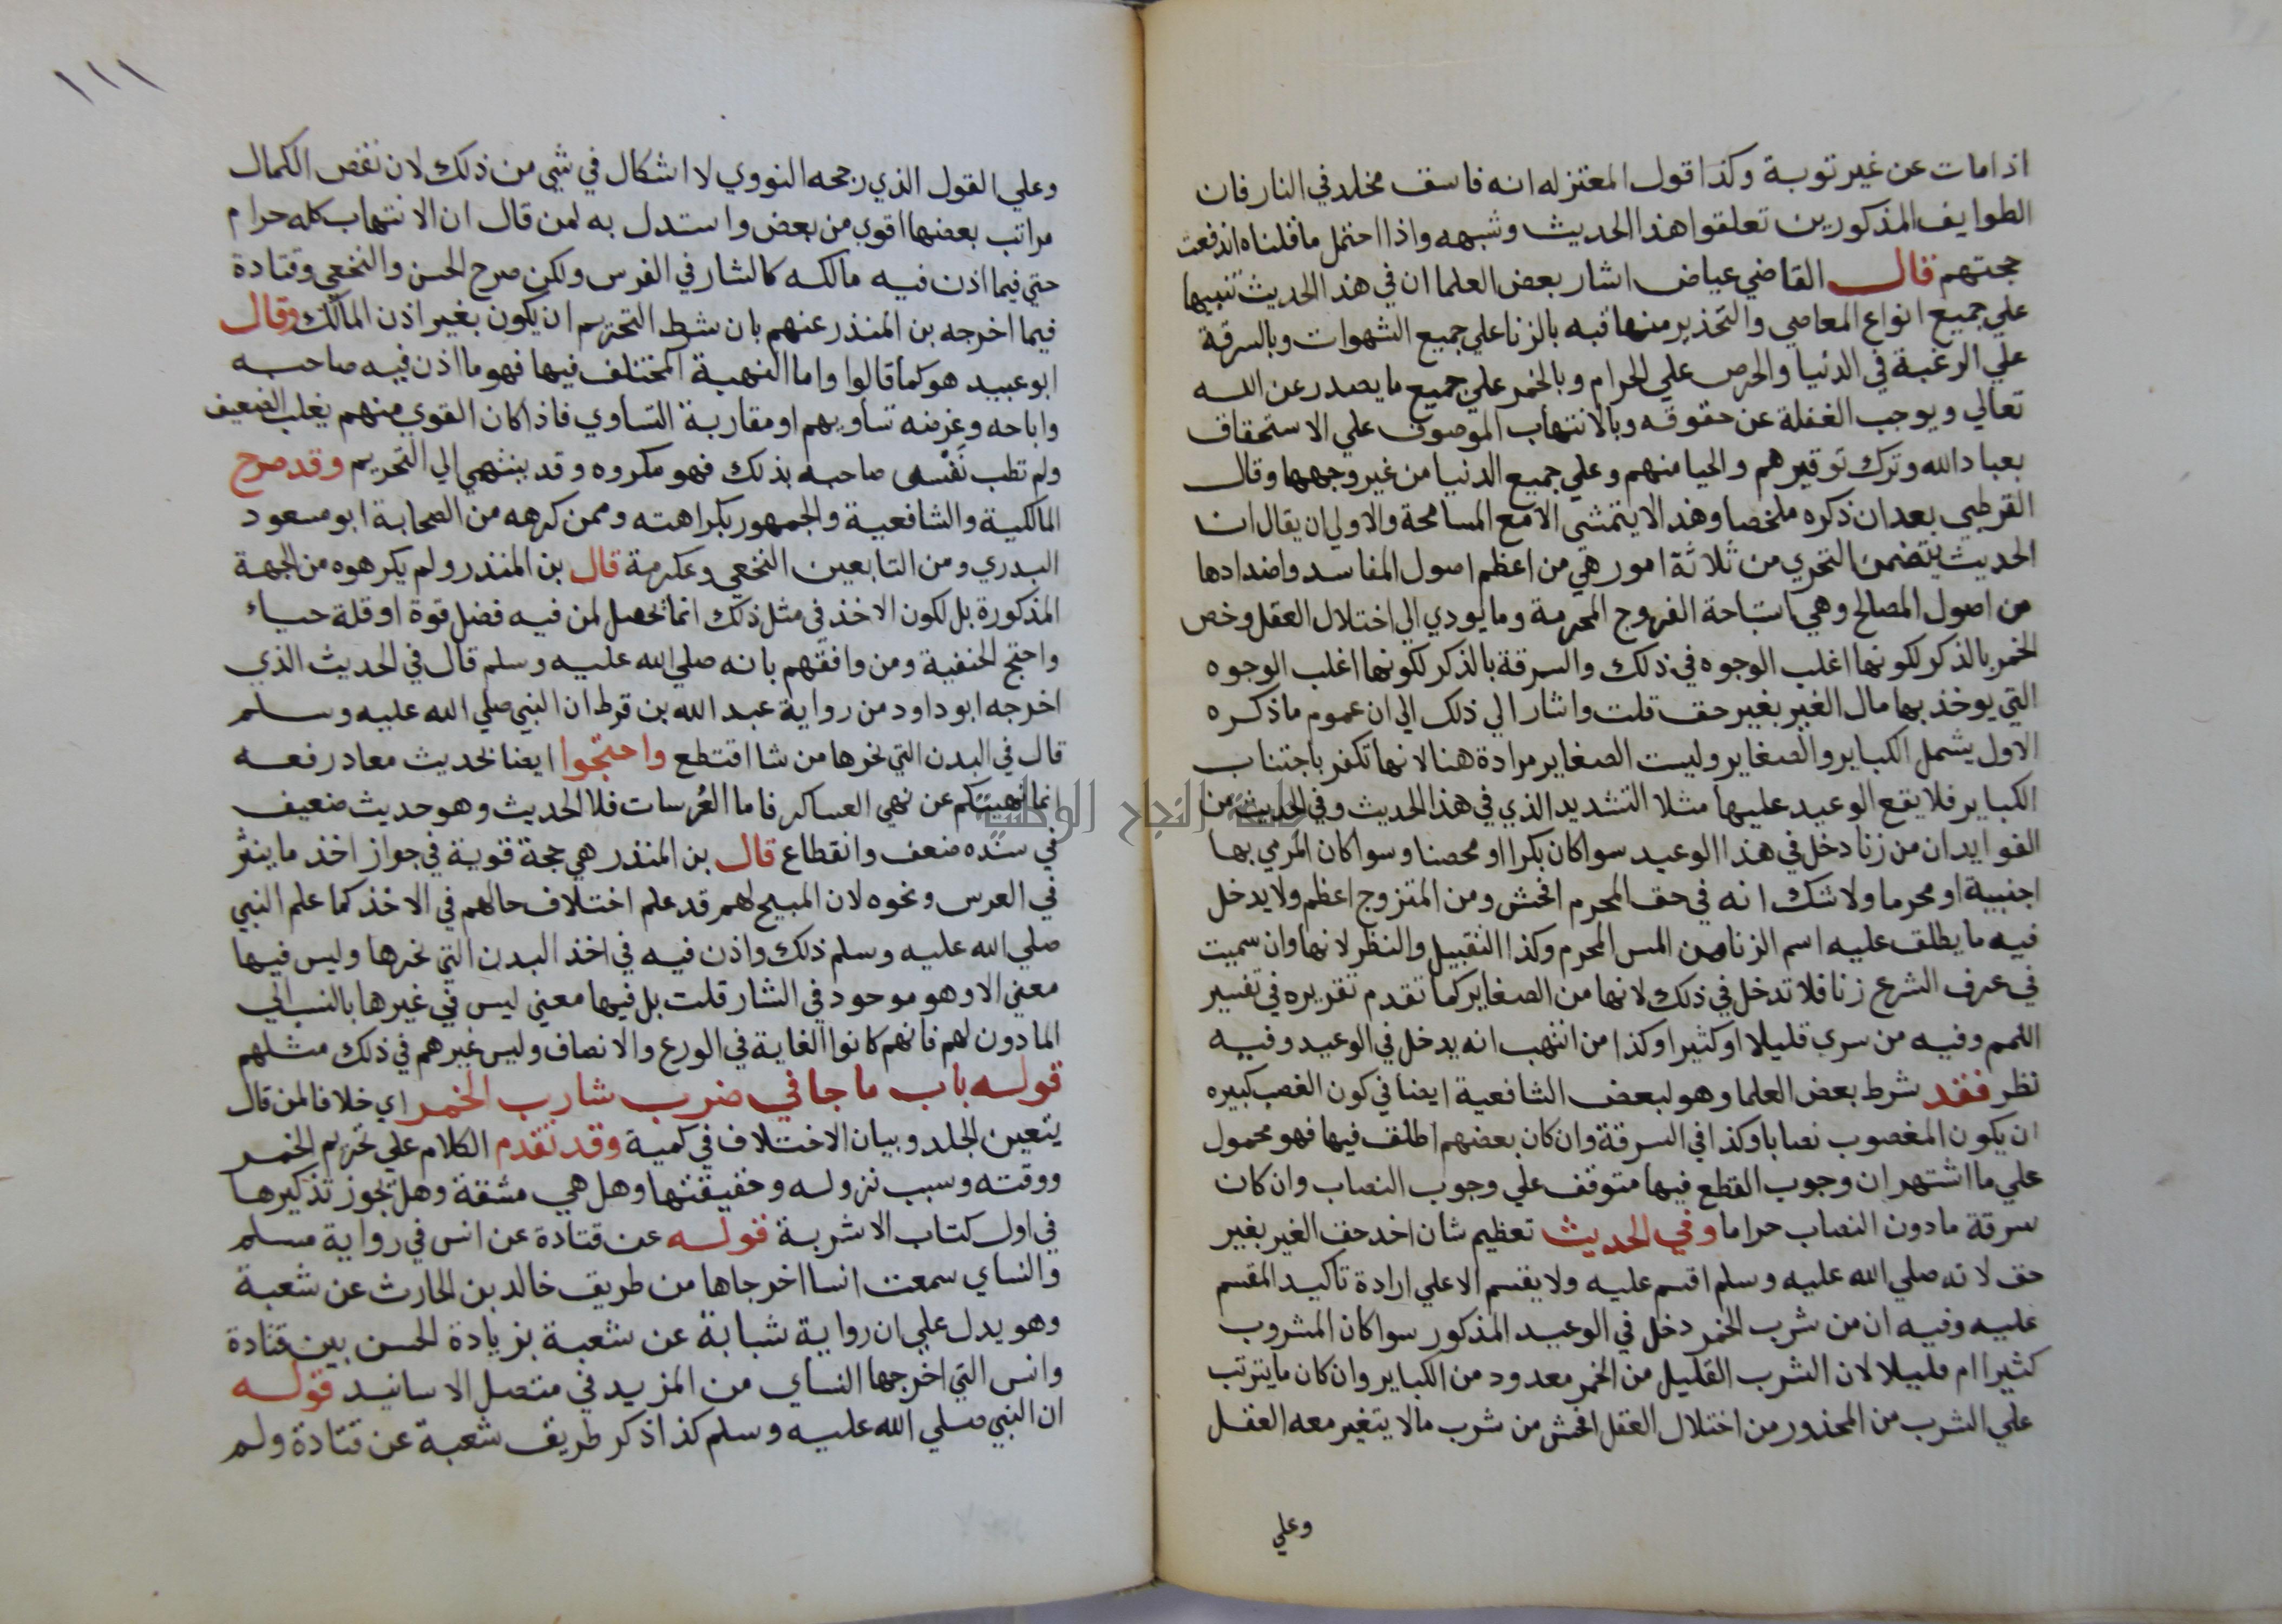 اذا مات عن غير توبة وكذا قول المعتزله انه فاسق مخلد في النار فان
الطوايف المذكورين تعلقوا هذا الحديث وشبهه واذا احتمل ما قلناه اندفعت
حجتهم قال القاضي عياض اشار بعض العلما ان في هذا الحديث تنبيها
علي جميع انواع المعاصي والتحذير منها فنبه بالزنا علي جميع الشهوات وبالسرقة
علي الرغبة في الدنيا والحرص علي الحرام وبالخمر علي جميع ما يصدر عن الله
تعالي ويوجب الغفلة عن حقوقه وبالانتهاب الموصوف علي الاستحقاق
بعباد الله وترك توقيرهم والحيا منهم وعلي جميع الدنيا من غير وجهها وقال
القرطبي بعد ان ذكره ملخصا وهذا لا يتمشي الا مع المسامحة والاولي ان يقال ان
الحديث يتضمن التحري من ثلاثة امور هي من اعظم اصول المفاسد واضدادها
من اصول المصالح وهي استباحة الفروج المحرمة وما يودي الي اختلال العقل وخص
الخمر بالذكر لكونها اغلب الوجوه في ذلك والسرقة بالذكر لكونها اغلب الوجوه
التي يوخذ بها مال الغير بغير حق قلت واشار الي ذلك الي ان عموم ما ذكره
الاول يشمل الكباير والصغاير وليست الصغاير مرادة هنا لانها تكفر باجتناب
الكباير فلا يقع الوعيد عليها مثل التشديد الذي في هذا الحديث وفي الحديث من
الفوايد ان من زنا دخل في هذا الوعيد سوا كان بكرا او محصنا وسوا كان المرمي بها
اجنبية او محرما ولا شك انه في حق المحرم افحش ومن المتزوج اعظم ولا يدخل
فيه ما يطلق عليه اسم الزنا من المس المحرم وكذا التقبيل والنظر لانها وان سميت
في عرف الشرع زنا فلا تدخل في ذلك لانها من الصغاير كما تقدم تقريره في تفسير
اللمم وفيه من سرق قليلا او كثيرا وكذا من انتهب انه يدخل في الوعيد وفيه
نظر فقد شرط بعض العلما وهو لبعض الشافعية ايضا في كون الغصب كبيره
ان يكون المغصوب نصابا وكذا في السرقة وان كان بعضهم اطلق فيها فهو محمول
علي ما اشتهر ان وجوب القطع فيها متوقف علي وجوب النصاب وان كان
سرقة ما دون النصاب حراما وفي الحديث تعظيم شان اخد حق الغير بغير
حق لانه صلي الله عليه وسلم اقسم عليه ولا يقسم الا علي ارادة تاكيد المقسم
عليه وفيه ان من شرب الخمر دخل في الوعيد المذكور سوا كان المشروب
كثيرا ام قليلا لان الشرب القليل من الخمر معدود من الكباير وان كان ما يترتب
علي الشرب من المحذور من اختلال العقل افحش من شرب ما لا يتغير معه العقل
وعلي
١١١
وعلي القول الذي رجحه النووي لا اشكال في شي من ذلك لان نقص الكمال
مراتب بعضها اقوي من بعض واستدل به لمن قال ان الانتهاب كله حرام
حتي فيما اذن فيه مالكه كالنثار في الفرس ولكن صرح الحسن والنخعي وقتادة
فيما اخرجه بن المنذر عنهم بان شرط التحريم ان يكون بغير اذن المالك وقال
ابو عبيد هو كما قالوا واما النهبة المختلف فيها فهو ما اذن فيه صاحبه
واباحه وغرضه تساويهم او مقاربة التساوي فاذا كان القوي منهم يغلب الضعيف
ولم تطب نفس صاحبه بذلك فهو مكروه وقد ينتهي الي التحريم وقد صرح
المالكية والشافعية والجمهور بكراهته وممن كرهه من الصحابة ابو مسعود
البدري ومن التابعين النخعي وعكرمة قال بن المنذر ولم يكرهوه من الجهة
المذكورة بل لكون الاخذ في مثل ذلك انما يحصل لمن فيه فضل قوة او قلة حياء
واحتج الحنفية ومن وافقهم بانه صلي الله عليه وسلم قال في الحديث الذي
اخرجه ابو داود من رواية عبد الله بن قرط ان النبي صلي الله عليه وسلم
قال في البدن التي نحرها من شا اقتطع واحتجوا ايضا بحديث معاد رفعه
انما نهيتكم عن نهي العساكر فاما العرسات فلا الحديث وهو حديث ضعيف
في سنده ضعف وانقطاع قال بن المنذر هي حجة قوية في جواز اخذ ما ينثر
في العرس ونحوه لان المبيح لهم قد علم اختلاف حالهم في الاخذ كما علم النبي
صلي الله عليه وسلم ذلك واذن فيه في اخذ البدن التي نحرها وليس فيها
معني الا وهو موجود في النثار قلت بل فيها معني ليس في غيرها بالنسبالي
المادون لهم فانهم كانوا الغاية في الورع والانصاف وليس غيرهم في ذلك مثلهم
قوله باب ما جا في ضرب شارب الخمر اي خلافا لمن قال
يتعين الجلد وبيان الاختلاف في كمية وقد تقدم الكلام علي تحريم الخمر
ووقته وسبب نزوله وحقيقتها وهل هي مشقة وهل يجوز تذكيرها
في اول كتاب الاشربة قوله عن قتادة عن انس في رواية مسلم
والنساي سمعت انسا اخرجاها من طريق خالد بن الحارث عن شعبة
وهو يدل علي ان رواية شبابة عن شعبة بزيادة الحسن بين قتادة
وانس التي اخرجها النساي من المزيد في متصل الاسانيد قوله
ان النبي صلي الله عليه وسلم كذا ذكر طريق شعبة عن قتادة ولم
جامعة النجاح الوطنية